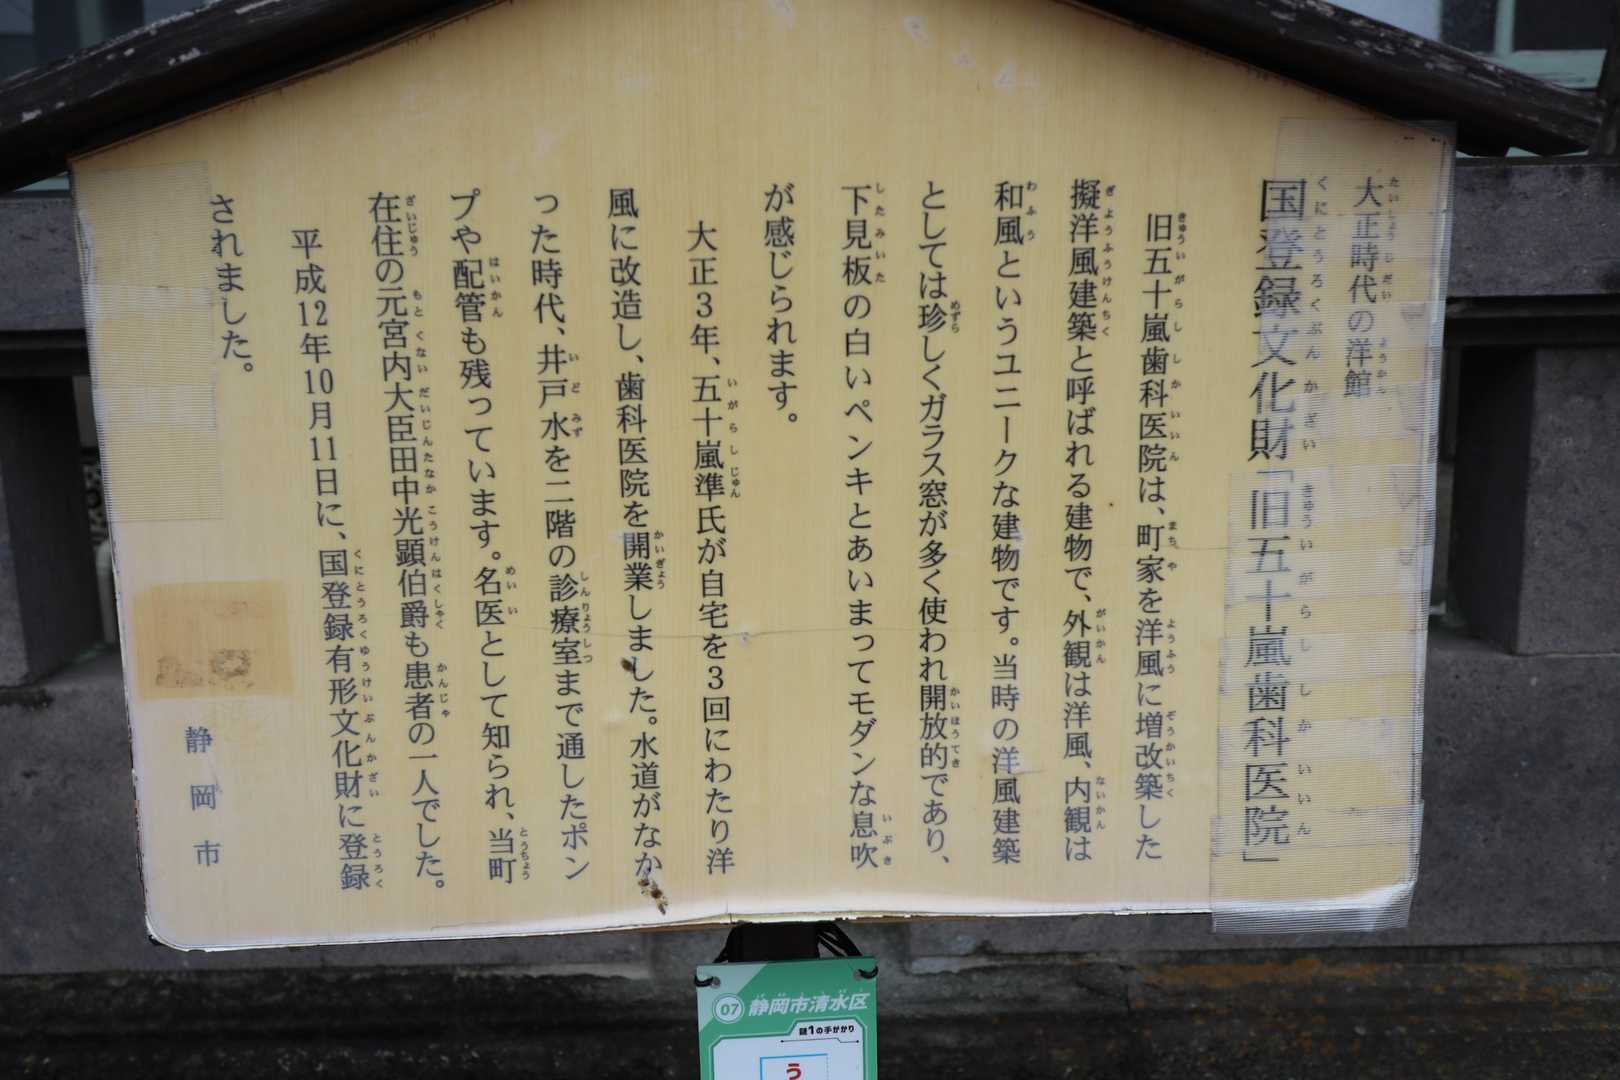 大正時代の洋館
国登録文化財「旧五十嵐歯科医院」
旧五十嵐歯科医院は、町家を洋風に増改築した
擬洋風建築と呼ばれる建物で、外観は洋風、内観は
和風というユニークな建物です。当時の洋風建築
としては珍しくガラス窓が多く使われ開放的であり、
下見板の白いペンキとあいまってモダンな息吹
が感じられます。
大正3年、五十嵐準氏が自宅を3回にわたり洋
風に改造し、歯科医院を開業しました。水道がなか
った時代、井戸水を二階の診療室まで通したポン
プや配管も残っています。名医として知られ、当町
在住の元宮内大臣田中光顕伯爵も患者の一人でした。
平成12年10月11日に、国登録有形文化財に登録
されました。
静岡市
07 静岡市清水区
謎1の手がかり
う